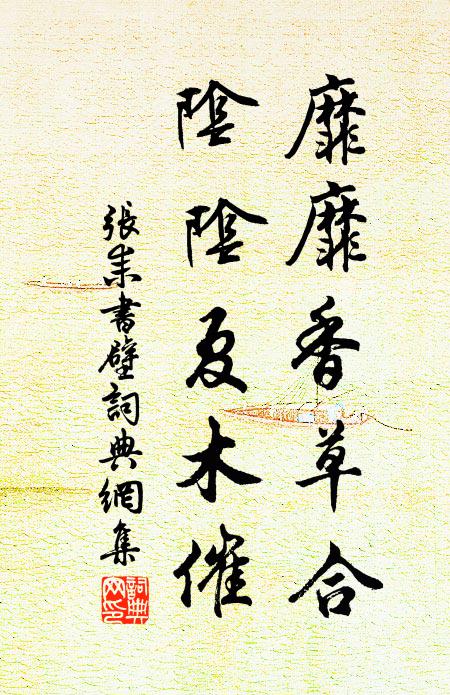 靡靡香草合
陰陰夏木催
張耒書壁詞典網集
詞典
網印